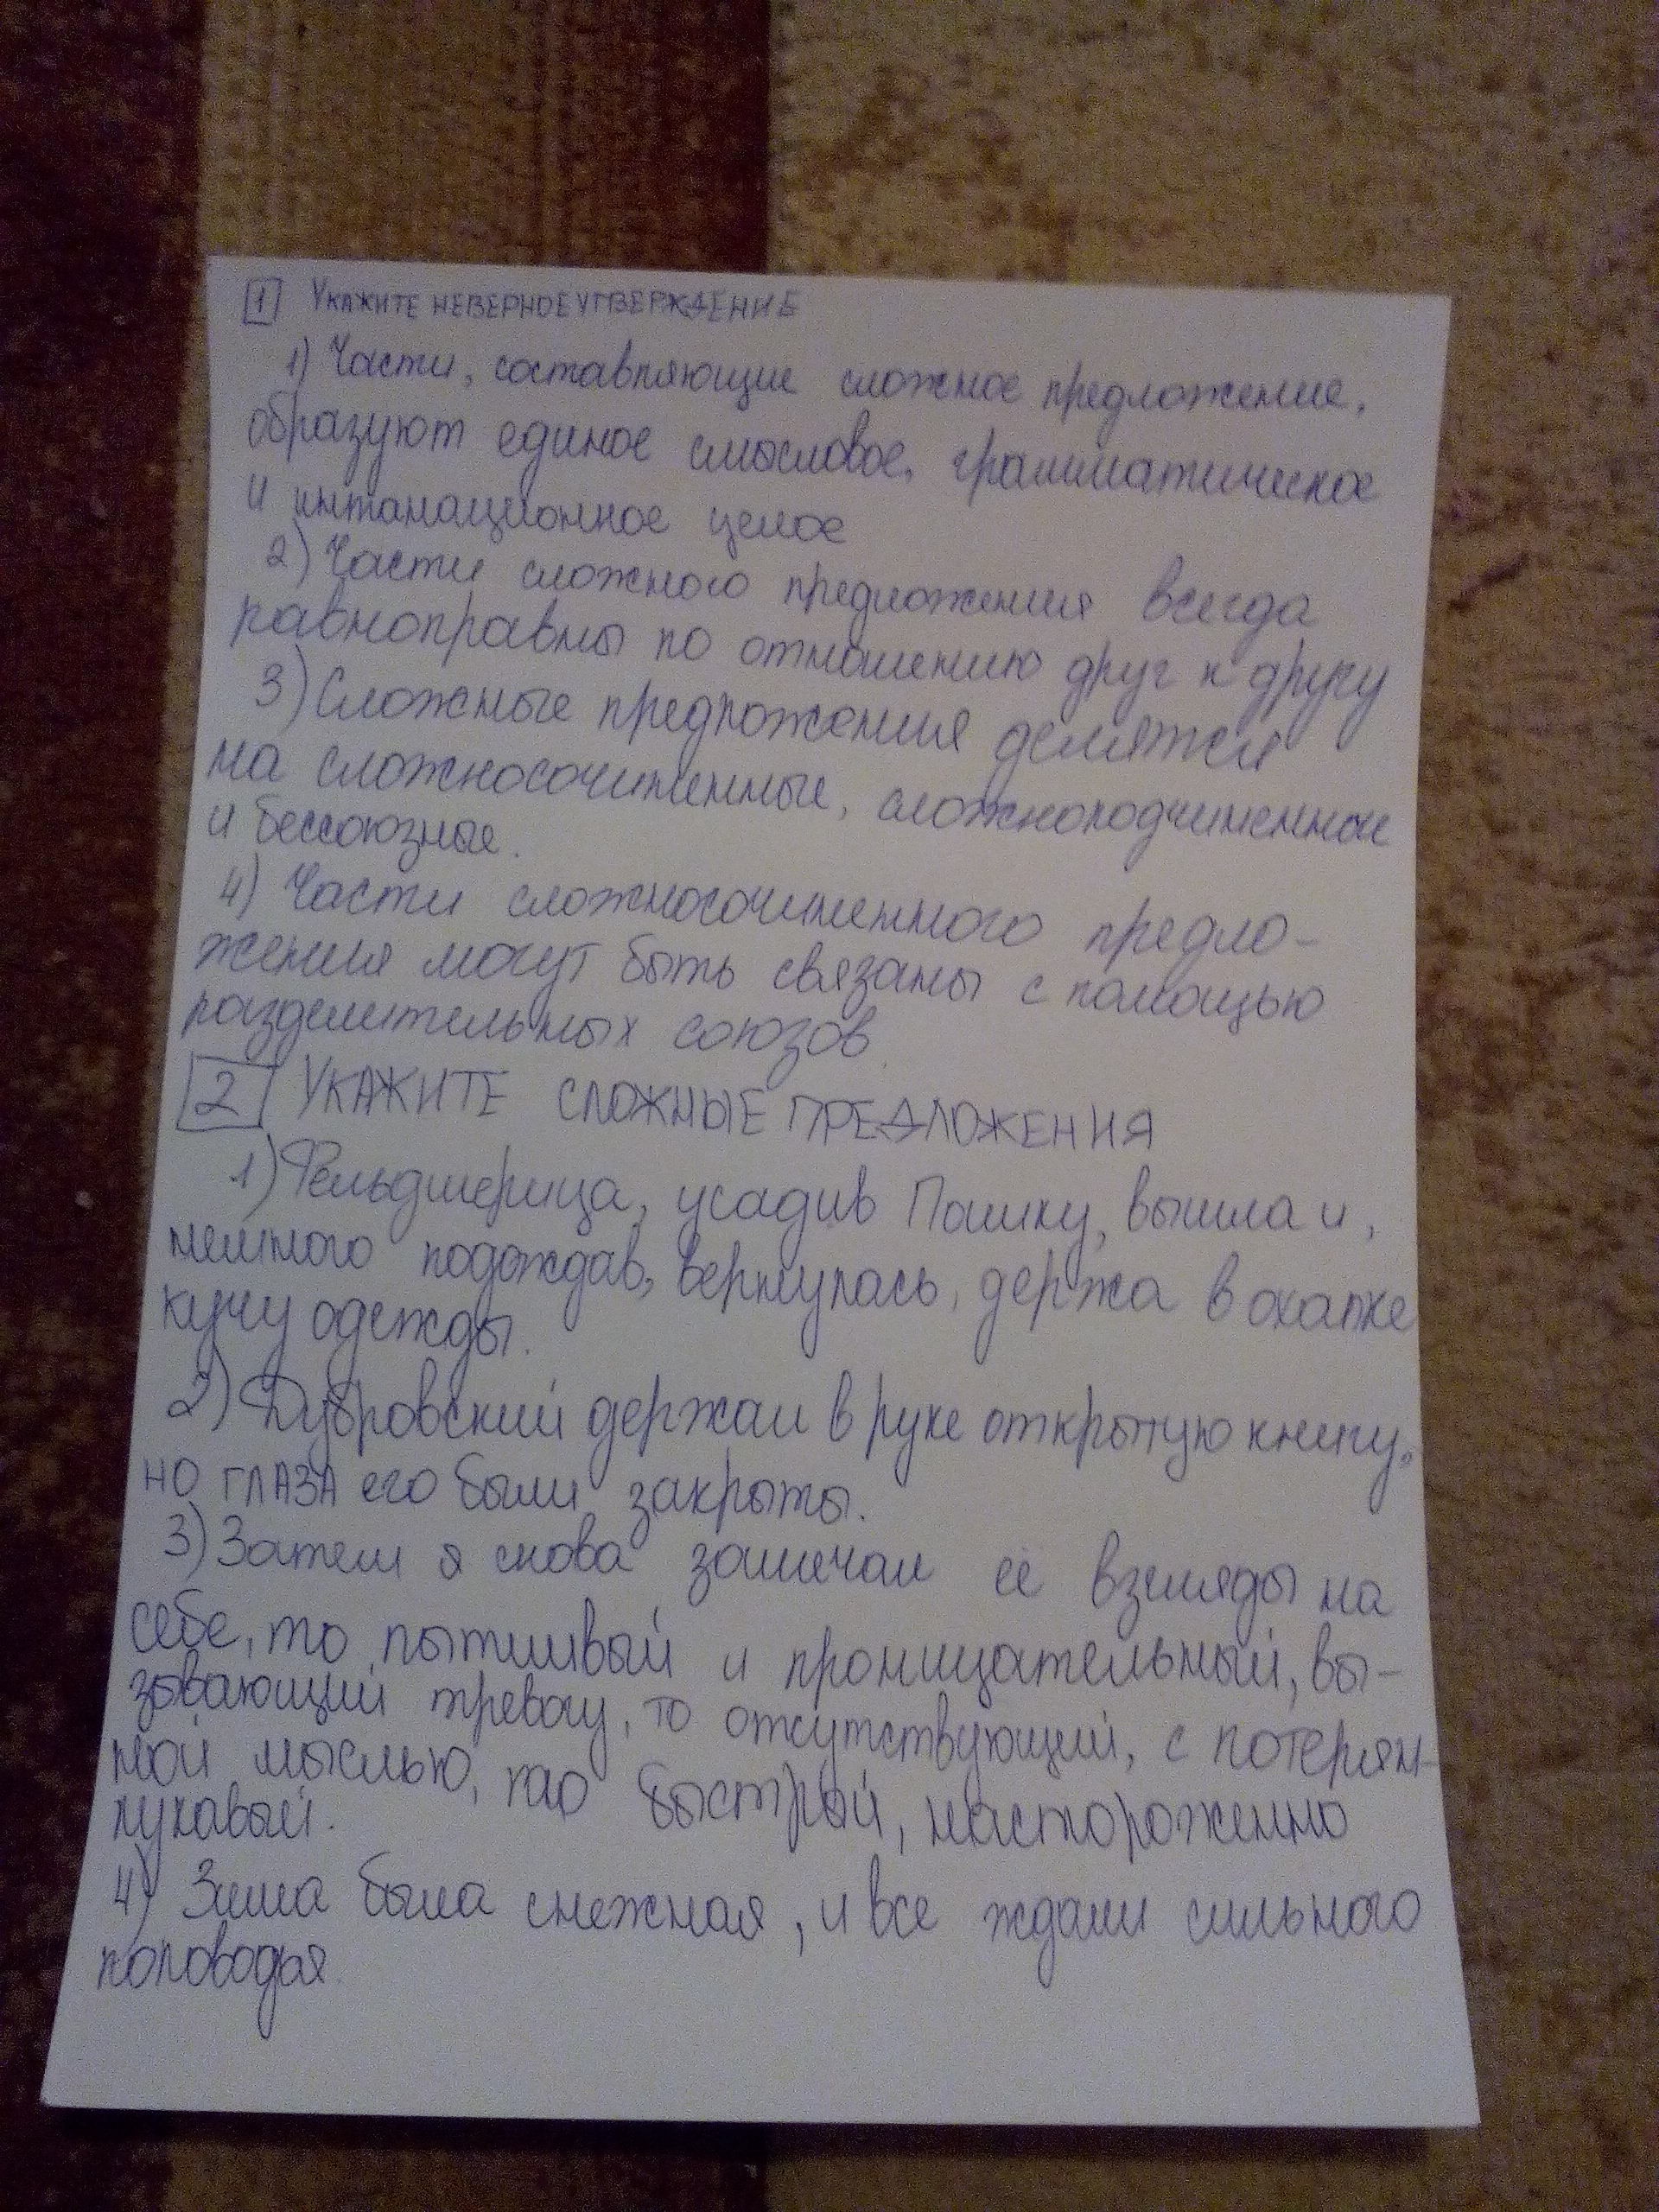 1 УКАЖИТЕ НЕВЕРНОЕ УТВЕРЖДЕНИЕ
1) Части, составляющие сложное предложение,
образуют единое смысловое, грамматическое
и интанационное целое
2) Части сложного предложения всегда
равноправны по отношению друг к другу
3) Сложные предложения делятся
на сложносочиненные, сложноподчиненные
и бессоюзные.
4) Части сложносочиненного предло-
жения могут быть связаны с помощью
разделительных союзов.
2 УКАЖИТЕ СЛОЖНЫЕ ПРЕДЛОЖЕНИЯ
1) Фельдшерица, усадив Пашку, вышла и,
немного подождав, вернулась, держа в охапке
кучу одежды.
2) Дубровский держал в руке открытую книгу,
но ГЛАЗА его были закрыты.
3) Затем я снова замечал ее взгляды на
себе, то пытливый и проницательный, вы-
зывающий тревогу, то отсутствующий, с потерян-
ной мыслью, то быстрый, настороженно
лукавый.
4) Зима была снежная, и все ждали сильного
половодья.